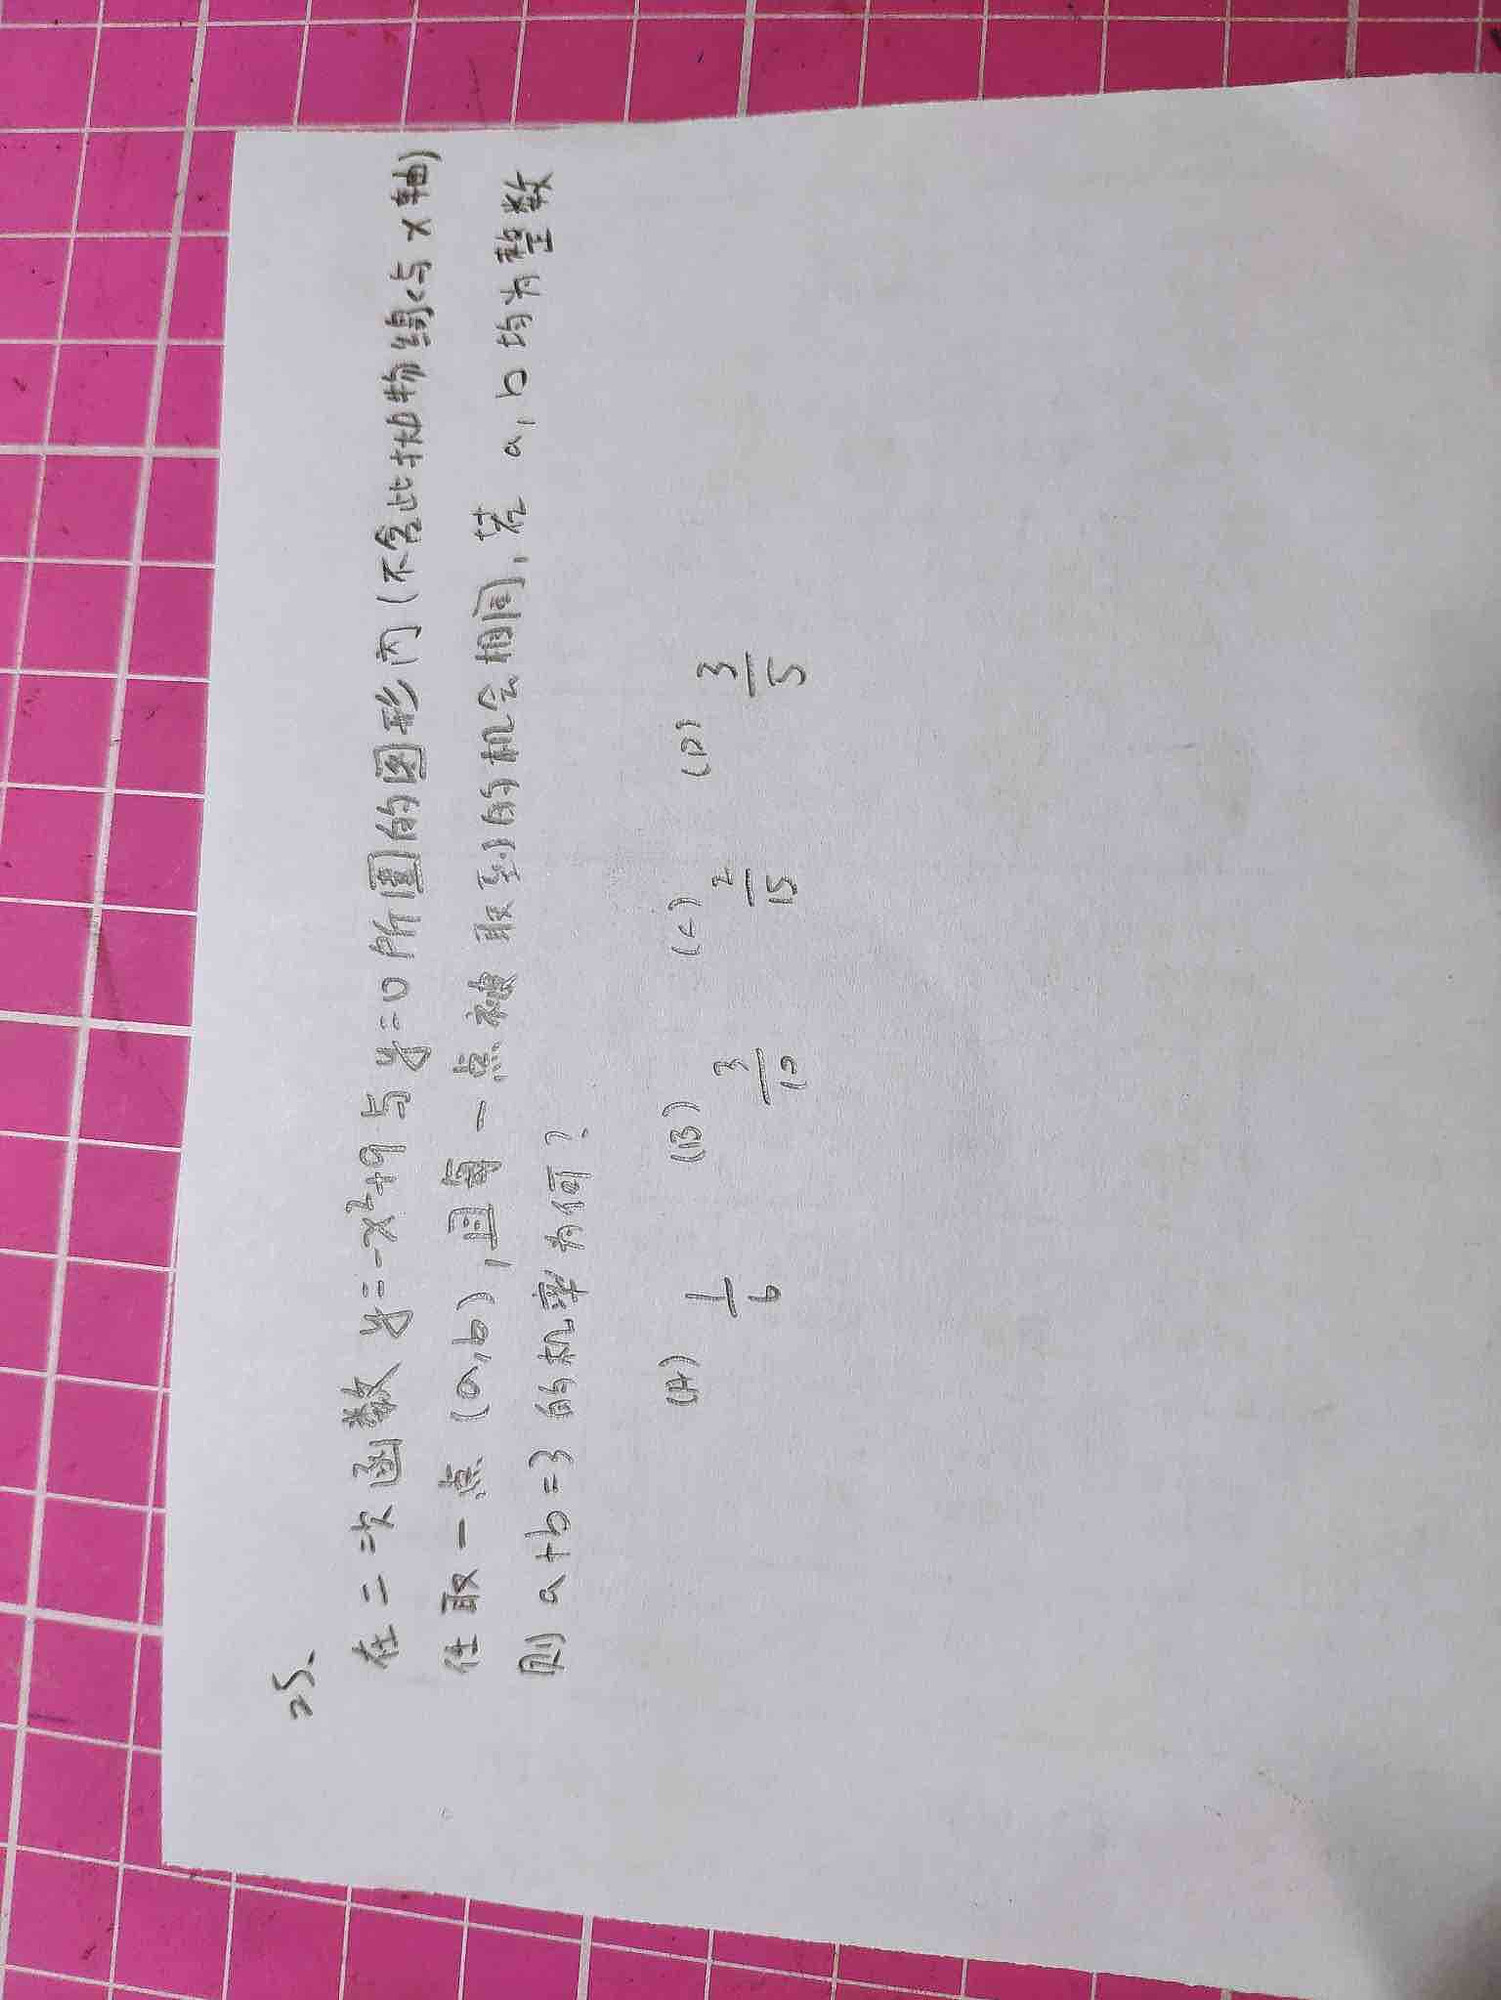 25、
在二次函数 y=-x²+9 与 y=0 所围的图形内(不含此抛物线与x軸)
任取一点 (a,b),且每一点被取到的机会相同,若 a,b均为整数
则 a+b=3 的机率为何?
(A) 1/6 (B) 3/10 (C) 2/15 (D) 3/5